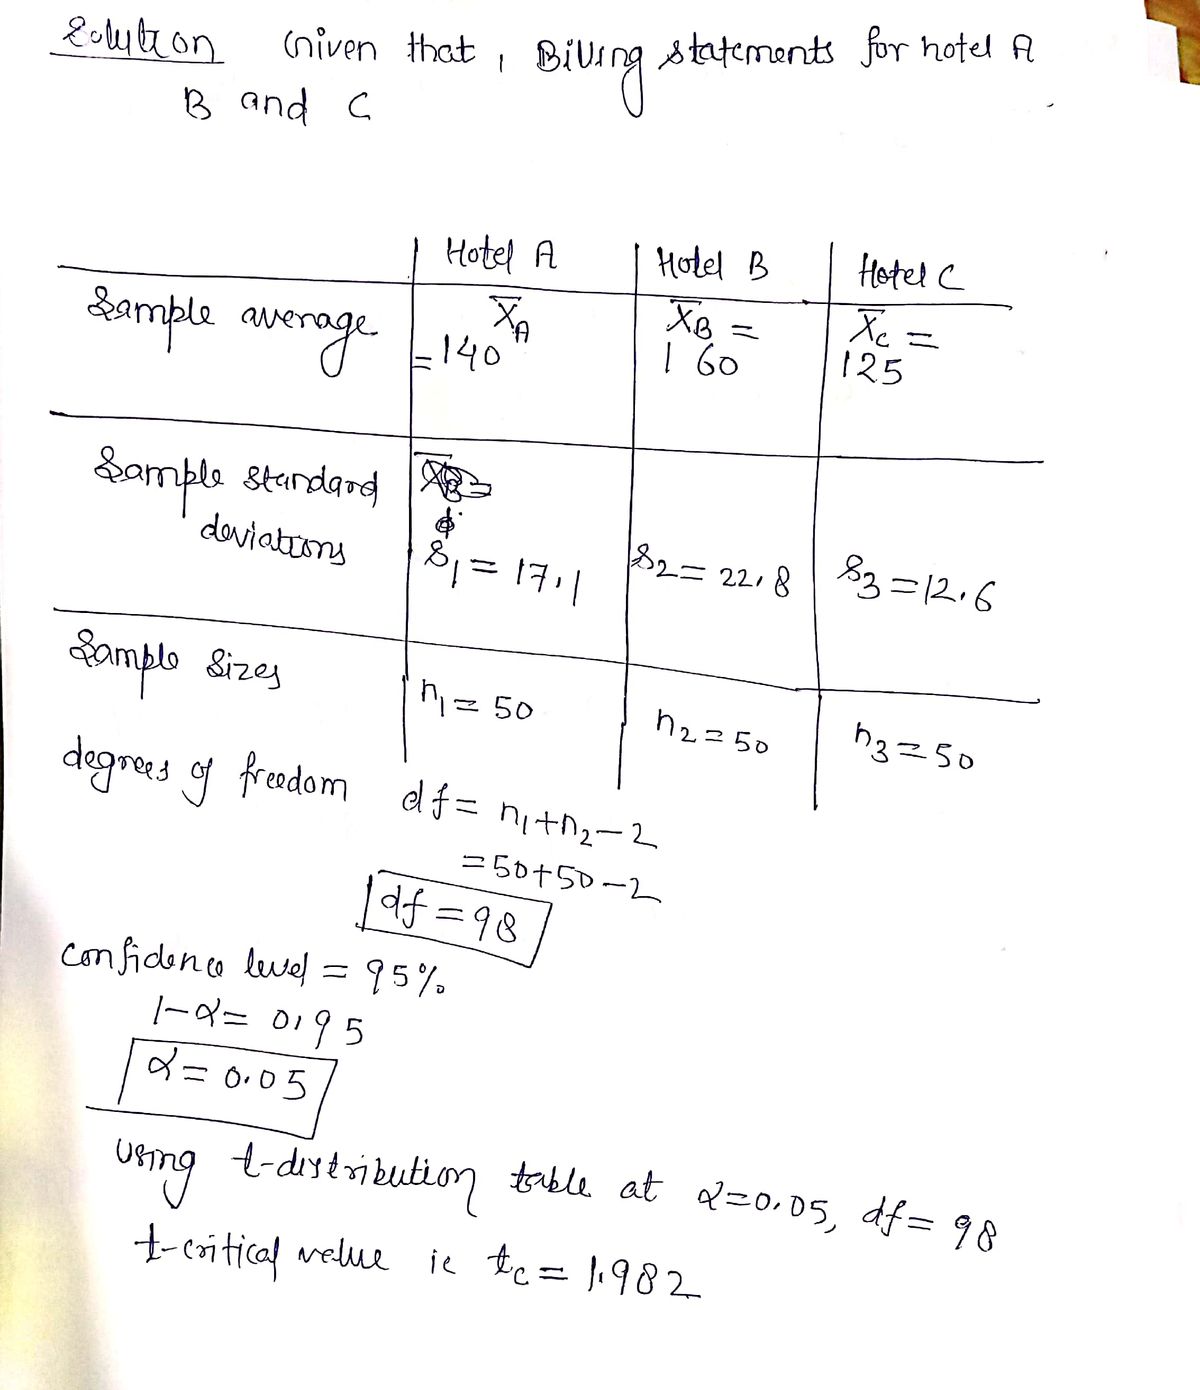 Solution Given that, Billing statements for hotel A
B and C
Hotel A Hotel B Hotel C
Sample average X̄A = 140 X̄B = 160 X̄C = 125
Sample standard deviations S1 = 17.1 S2 = 22.8 S3 = 12.6
Sample sizes n1 = 50 n2 = 50 n3 = 50
degrees of freedom df = n1+n2-2
= 50+50-2
df = 98
Confidence level = 95%
1-α = 0.95
α = 0.05
using t-distribution table at α=0.05, df = 98
t-critical value is tc = 1.982